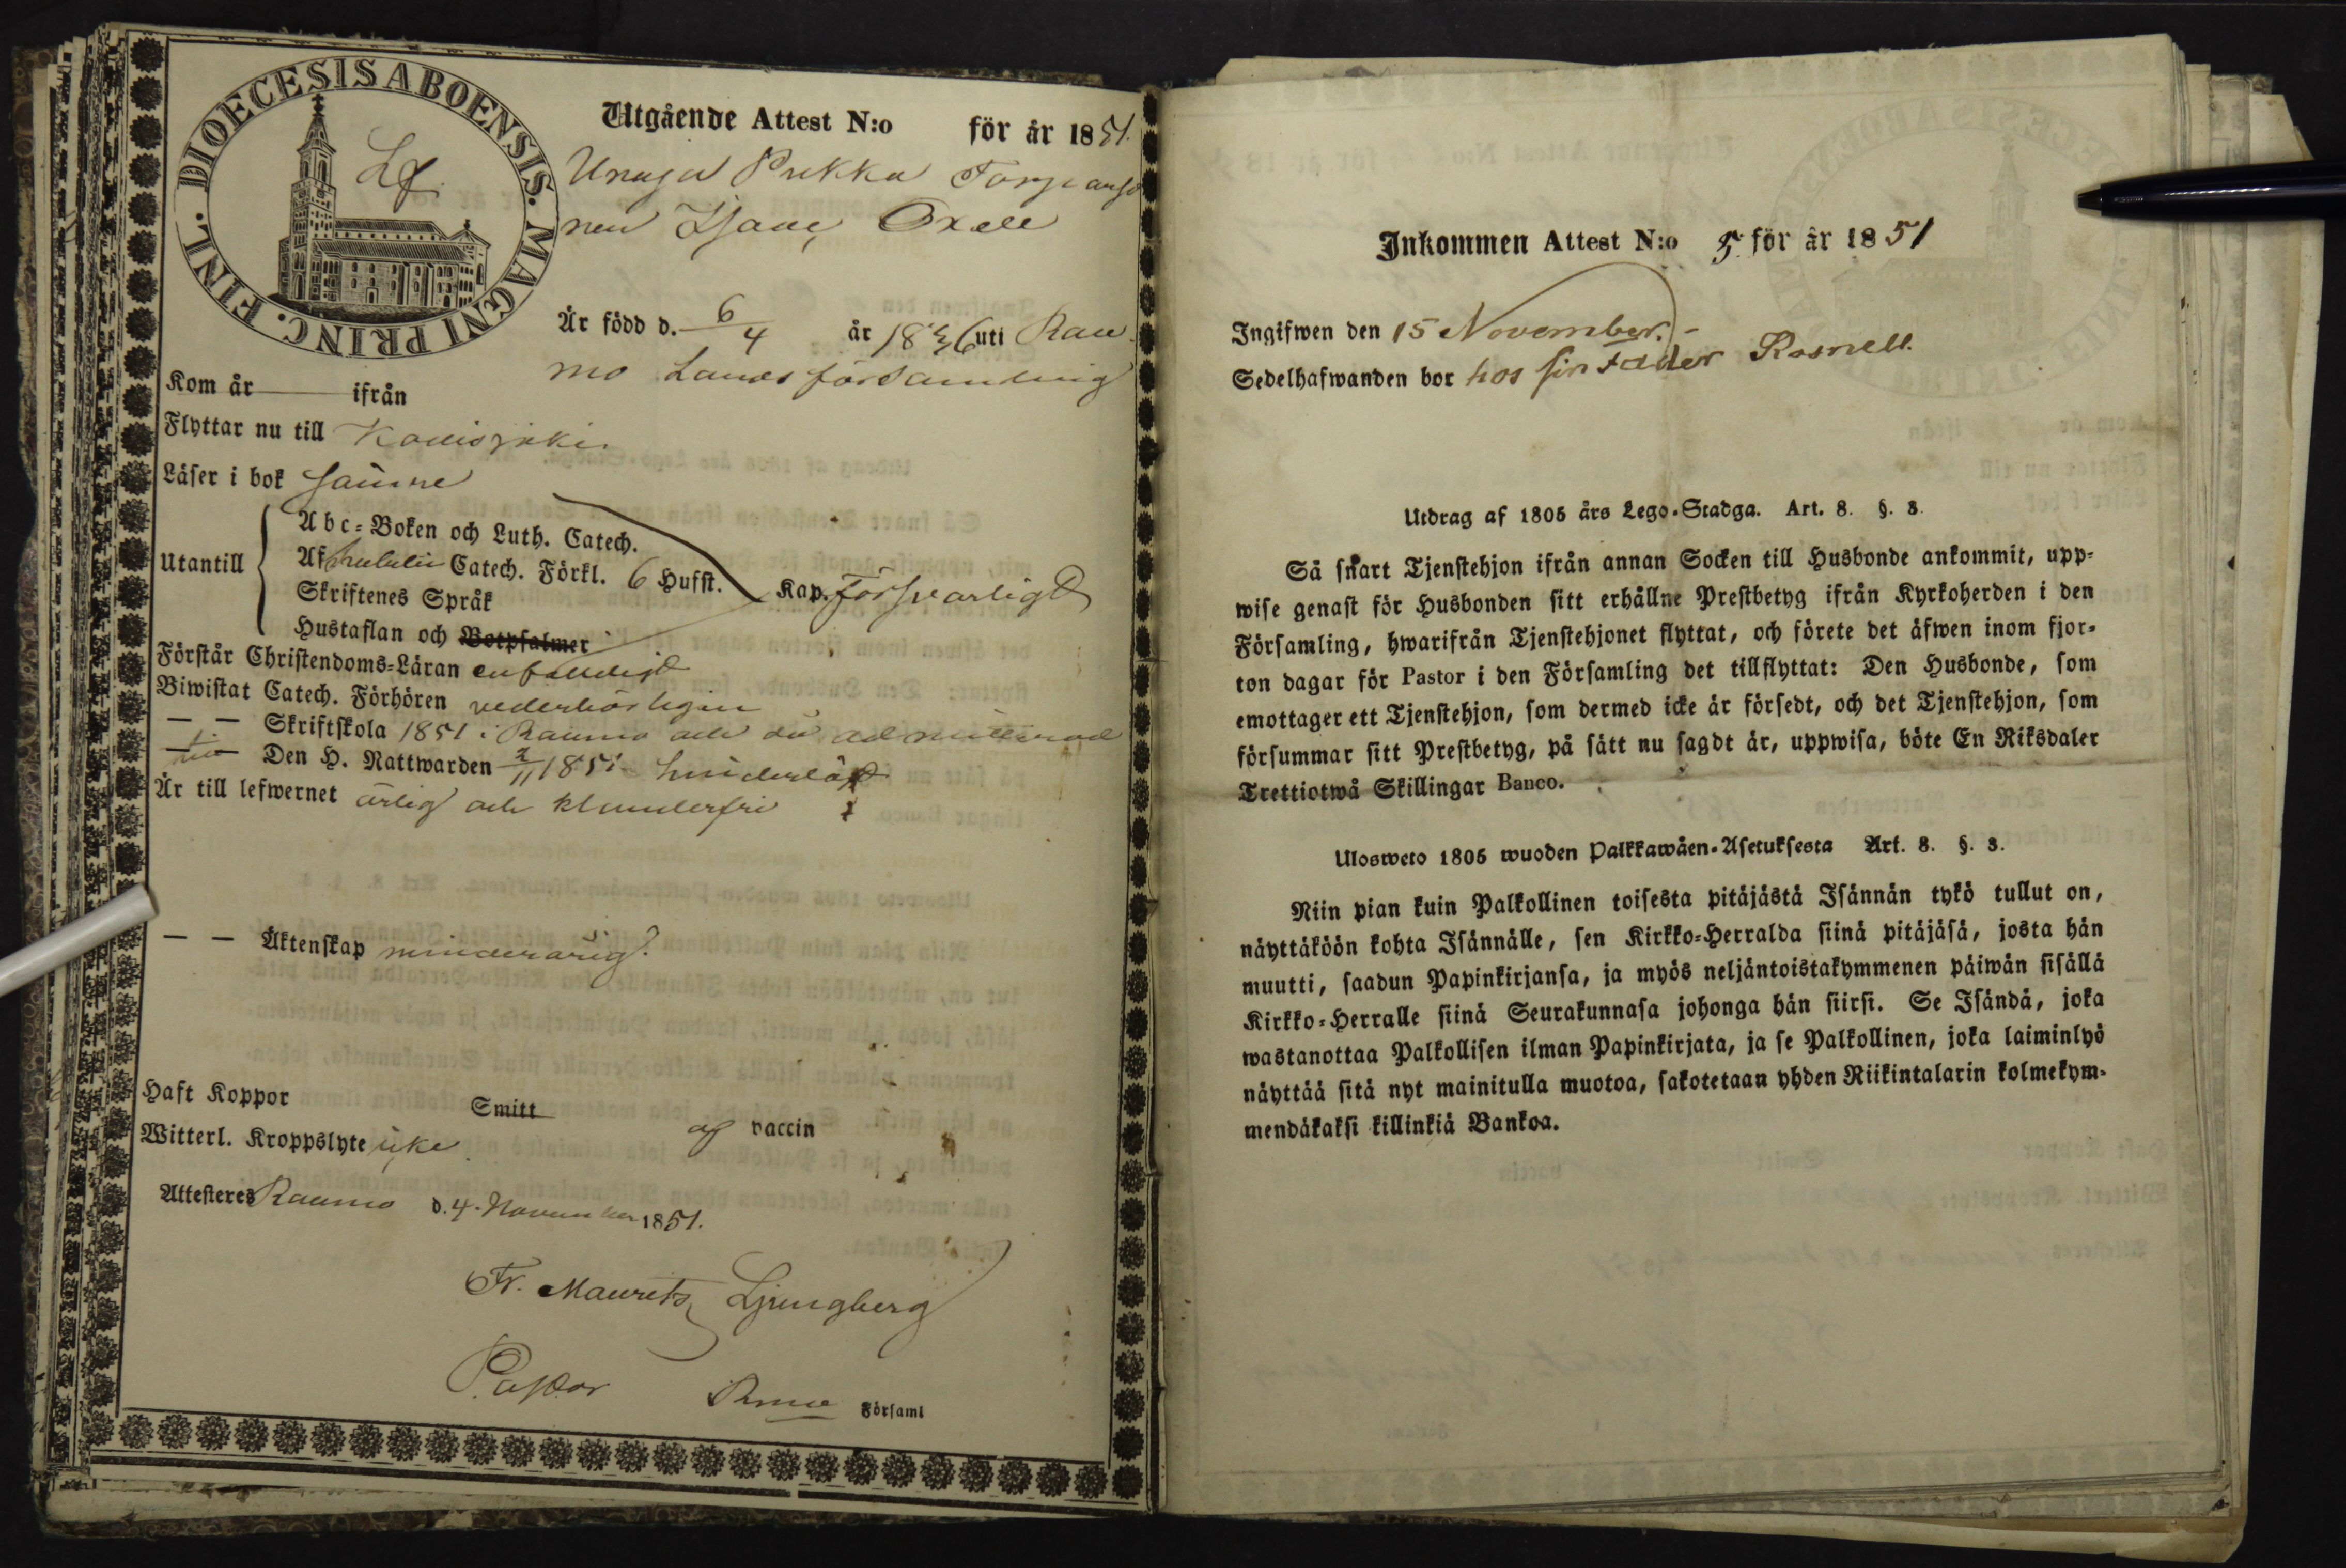 DIOECESIS ABOENSIS. MAGNI PRINC. FINL.
Utgående Attest N:o för år 1851.
Unaja Pukka Torparso
nen Isaac
Är född d. 6/4 år 1836 uti Rau
mo Landsförsamling
Kom år — ifrån
Flyttar nu till
Läser i bok
Utantill
Abc-Boken och Luth. Catech.
Af Catech. Förkl. 6 Hufst. Kap. försvarligt
Skriftenes Språk
Hustaflan och Botpsalmer
Förstår Christendoms-Läran enfaldigt
Biwistat Catech. Förhören vederbörligen
— — Skriftskola 1851 i Raumo och admitterad
— — Den H. Nattwarden 2/11 1851
Är till lefwernet ärlig och klanderfri
— — Äktenskap minderårig.
Haft Koppor Smitt af vaccin
Witterl. Kroppslyte icke
Attesteres Raumo d. 4. November 1851.
Fr. Maurits Ljungberg
Pastor Församl
Inkommen Attest N:o 5 för år 1851
Ingifwen den 15 November.
Sedelhafwanden bor hos sin fader Rosnell.
Utdrag af 1805 års Lego-Stadga. Art. 8. §. 3.
Så snart Tjenstehjon ifrån annan Socken till Husbonde ankommit, upp-
wise genast för Husbonden sitt erhållne Prestbetyg ifrån Kyrkoherden i den
Församling, hwarifrån Tjenstehjonet flyttat, och förete det äfwen inom fjor-
ton dagar för Pastor i den Församling det tillflyttat: Den Husbonde, som
emottager ett Tjenstehjon, som dermed icke är försedt, och det Tjenstehjon, som
försummar sitt Prestbetyg, på sätt nu sagdt är, uppwisa, böte En Riksdaler
Trettiotwå Skillingar Banco.
Ulosweto 1805 wuoden Palkkawäen-Asetuksesta Art. 8. §. 3.
Niin pian kuin Palkollinen toisesta pitäjästä Isännän tykö tullut on,
näyttäköön kohta Isännälle, sen Kirkko-Herralda siinä pitäjäsä, josta hän
muutti, saadun Papinkirjansa, ja myös neljäntoistakymmenen päiwän sisällä
Kirkko-Herralle siinä Seurakunnasa johonga hän siirsi. Se Isändä, joka
wastanottaa Palkollisen ilman Papinkirjata, ja se Palkollinen, joka laiminlyö
näyttää sitä nyt mainitulla muotoa, sakotetaan yhden Riikintalarin kolmekym-
mendäkaksi killinkiä Bankoa.